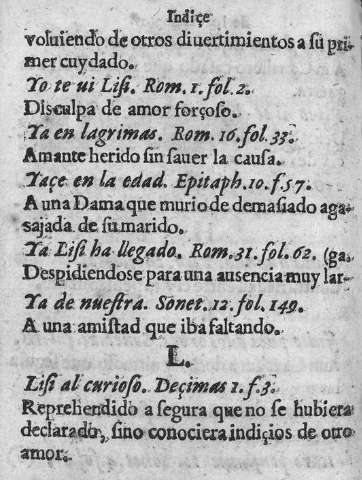 Indiçe
voluiendo de otros diuertimientos a sù pri
mer cuydado.
Yo te ui Liſi. Rom. 1. fol. 2.
Diſculpa de amor forçoſo.
Ya en lagrimas. Rom. 16. fol. 33.
Amante herido ſin ſauer la cauſa.
Yaçe en la edad. Epitaph. 10. f. 57.
A una Dama que murio de demaſiado aga
ſajada de ſu marido.
Ya Liſi ha llegado. Rom. 31. fol. 62. (ga.
Deſpidiendoſe para una auſencia muy lar-
Ya de nueſtra. Sonet. 12. fol. 149.
A una amiſtad que iba faltando.
L.
Liſi al curioſo. Deçimas 1. f. 3.
Reprehendido a ſegura que no ſe hubiera
declarado, ſino conociera indiçios de otro
amor.